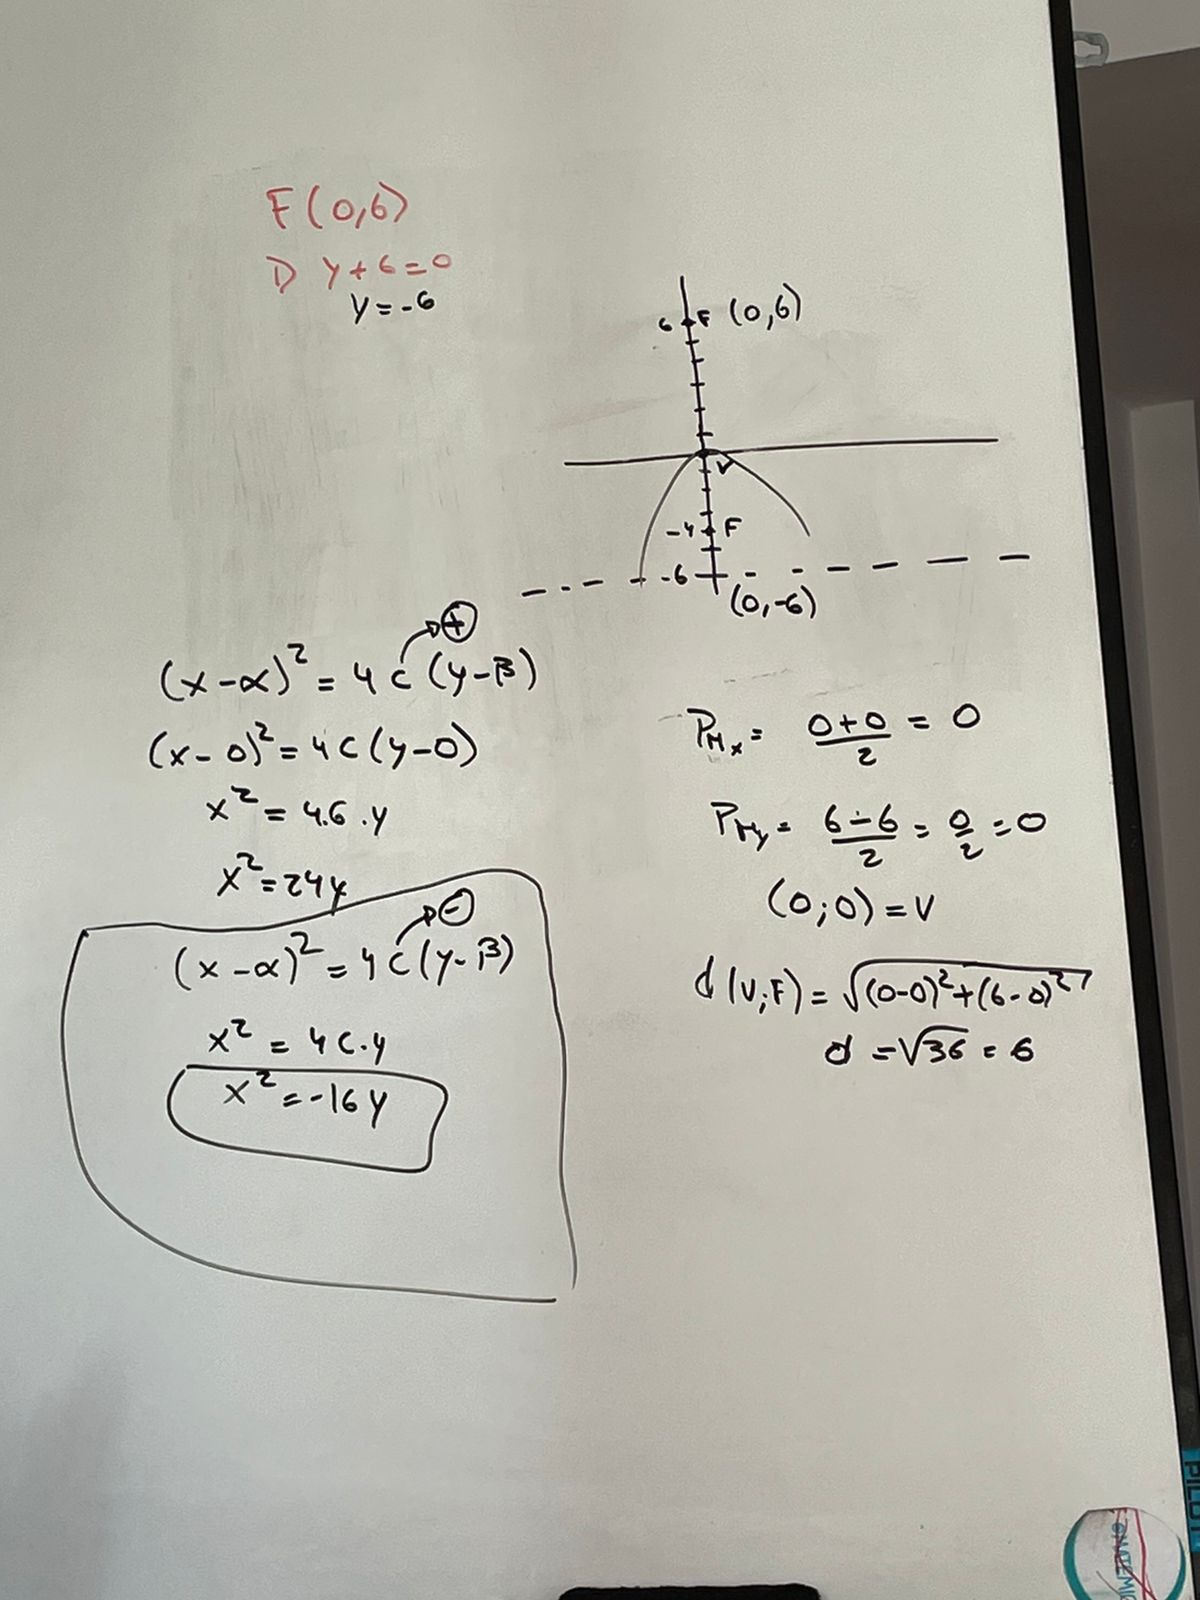 F(0,6)
D y+6=0
y=-6
6 F (0,6)
V
-4 F
-6
(0,-6)
+
(x-α)² = 4c(y-β)
(x-0)² = 4c(y-0)
x² = 4.6.y
x² = 24y
-
(x-α)² = 4c(y-β)
x² = 4c.y
x² = -16y
PMx = (0+0)/2 = 0
PMy = (6-6)/2 = 0/2 = 0
(0;0) = V
d(V;F) = √((0-0)²+(6-0)²)
d = √36 = 6
PILOT